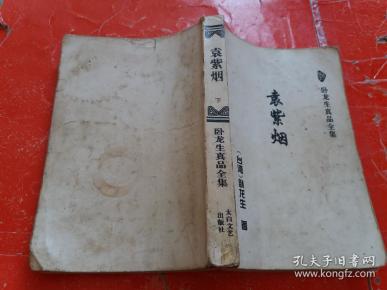 袁紫烟
下
卧龙生真品全集
太白文艺
出版社
卧龙生真品全集
袁紫烟
(台湾)卧龙生 著
孔夫子旧书网